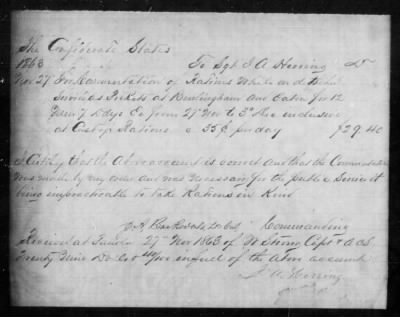 The Confederate States
1863 To Sgt J. A. Herring Dr
Nov 27 For Commutation of Rations While on detached
Service as Pickets at Buckingham and Eaton for 12
men 7 days Ea from 27 Nov to 3d Dec inclusive
at Cost of Rations @ 35¢ per day $29.40
I Certify that the Above account is correct and that the Commutation
was made by my order and was necessary for the public Service it
being impracticable to take Rations in Kind
Commanding
Received at 27th Nov 1863 of Capt & ACS
Twenty Nine Dollars 40/100 in full of the Above account
J. A. Herring